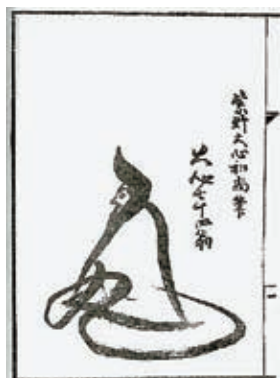 紫野大心和尚筆
大心七十四翁